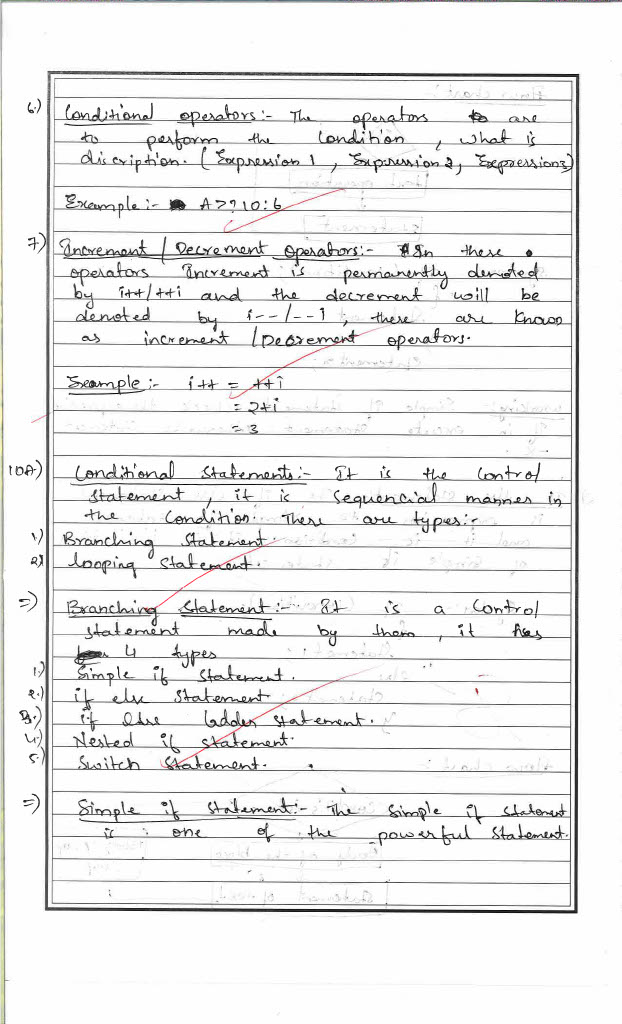 6.) Conditional operators:- The operators are
to perform the Condition, what is
discription. (Expression 1, Expression 2, Expression3)
Example:- A>?10:6
7) Increment / Decrement operators:- In there
operators Increment is permanently denoted
by i++/++i and the decrement will be
denoted by i--/--1, there are known
as increment / Decrement operators.
Example:- i++ = ++i
= 2+i
= 3
10A.) Conditional Statements:- It is the Control
Statement, it is Sequencial manner in
the Condition. There are types:-
1.) Branching Statement.
2) looping Statement.
=) Branching Statement:- It is a Control
Statement made by them, it has
4 types
1.) Simple if Statement.
2.) if else Statement
3.) if else ladder statement.
4.) Nested if statement.
5.) Switch Statement.
=) Simple if Statement:- The Simple if statement
is one of the powerful Statement.